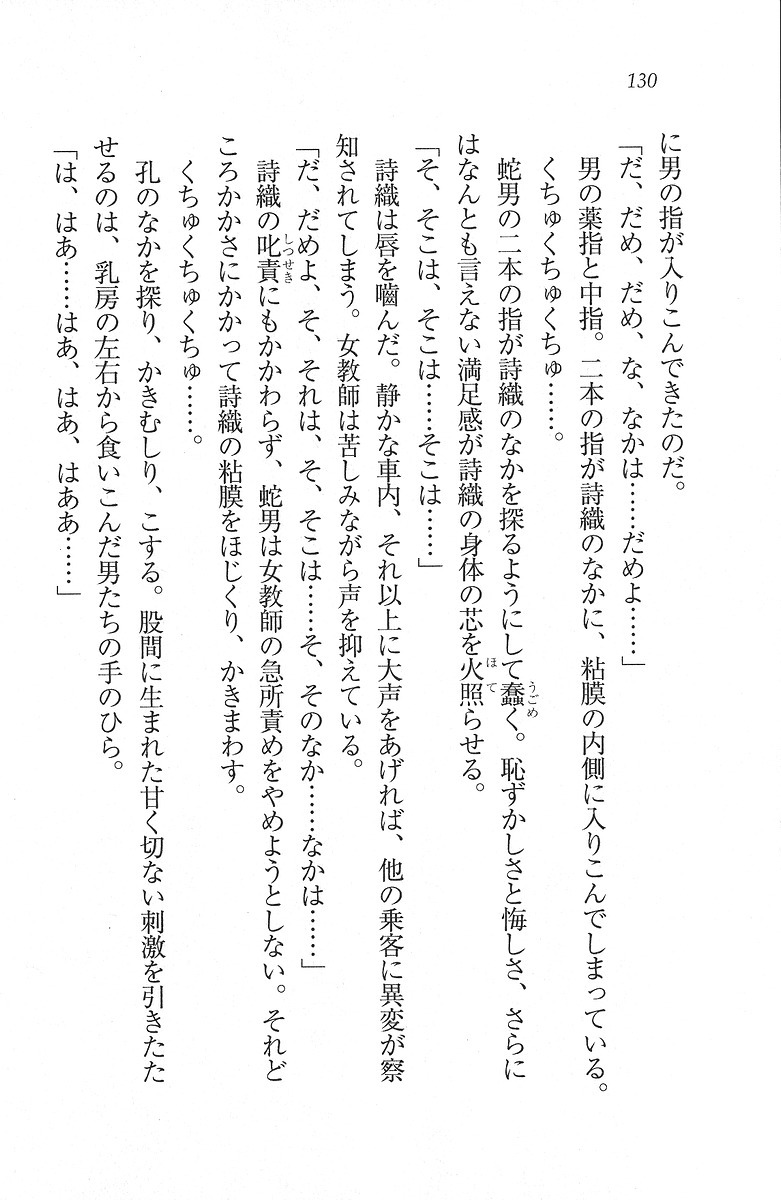 130
に男の指が入りこんできたのだ。
「だ、だめ、だめ、な、なかは……だめよ……」
男の薬指と中指。二本の指が詩織のなかに、粘膜の内側に入りこんでしまっている。
くちゅくちゅくちゅ……。
蛇男の二本の指が詩織のなかを探るようにして蠢く。恥ずかしさと悔しさ、さらに
はなんとも言えない満足感が詩織の身体の芯を火照らせる。
「そ、そこは、そこは……そこは……」
詩織は唇を嚙んだ。静かな車内、それ以上に大声をあげれば、他の乗客に異変が察
知されてしまう。女教師は苦しみながら声を抑えている。
「だ、だめよ、そ、それは、そ、そこは……そ、そのなか……なかは……」
詩織の叱責にもかかわらず、蛇男は女教師の急所責めをやめようとしない。それど
ころかかさにかかって詩織の粘膜をほじくり、かきまわす。
くちゅくちゅくちゅ……。
孔のなかを探り、かきむしり、こする。股間に生まれた甘く切ない刺激を引きたた
せるのは、乳房の左右から食いこんだ男たちの手のひら。
「は、はあ……はあ、はあ、はああ……」